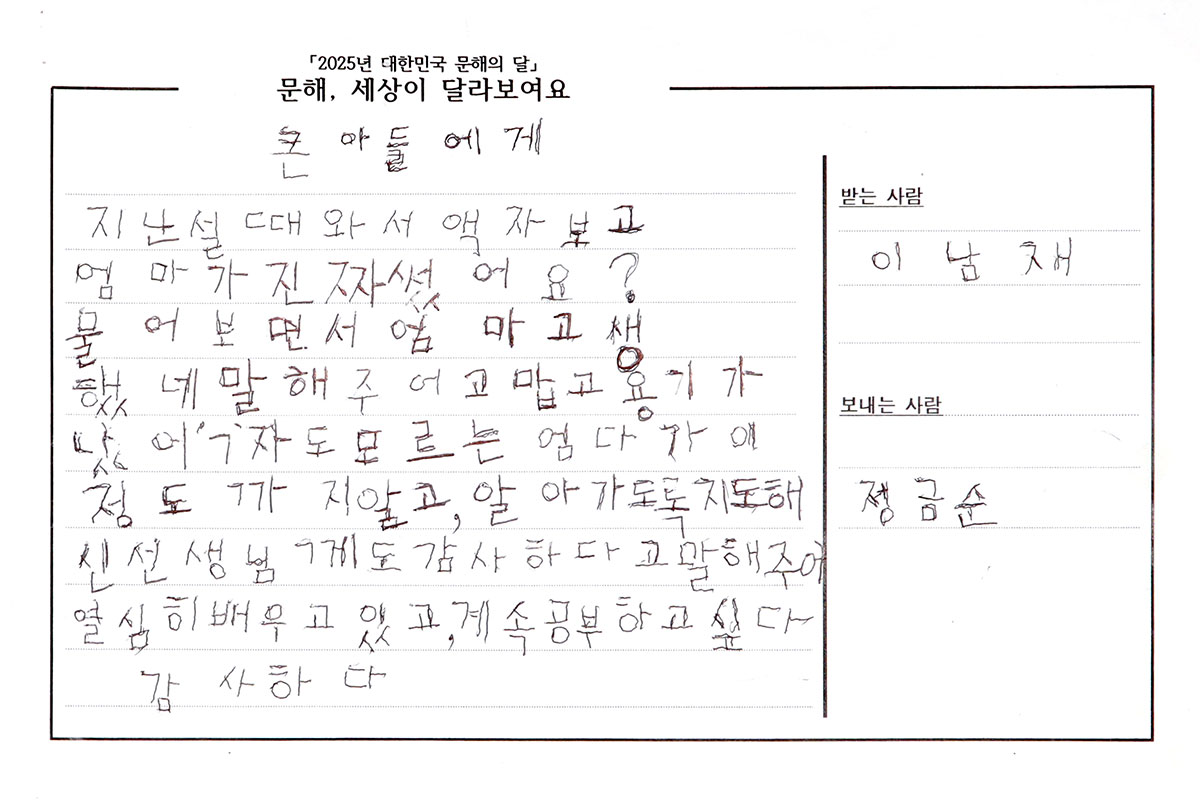 「2025년 대한민국 문해의 달」
문해, 세상이 달라보여요
큰 아들에게
지난설 때와서 액자보고
엄마가진짜썼어요?
물어보면서 엄마고생
했네말해주어고맙고용기가
났어 ㄱ자도모르는 엄마가 이
정도까지알고, 알아가도록지도해
신선생님께도감사하다고말해주어
열심히배우고있고,계속공부하고싶다
감사하다
받는 사람
이남재
보내는 사람
정금순